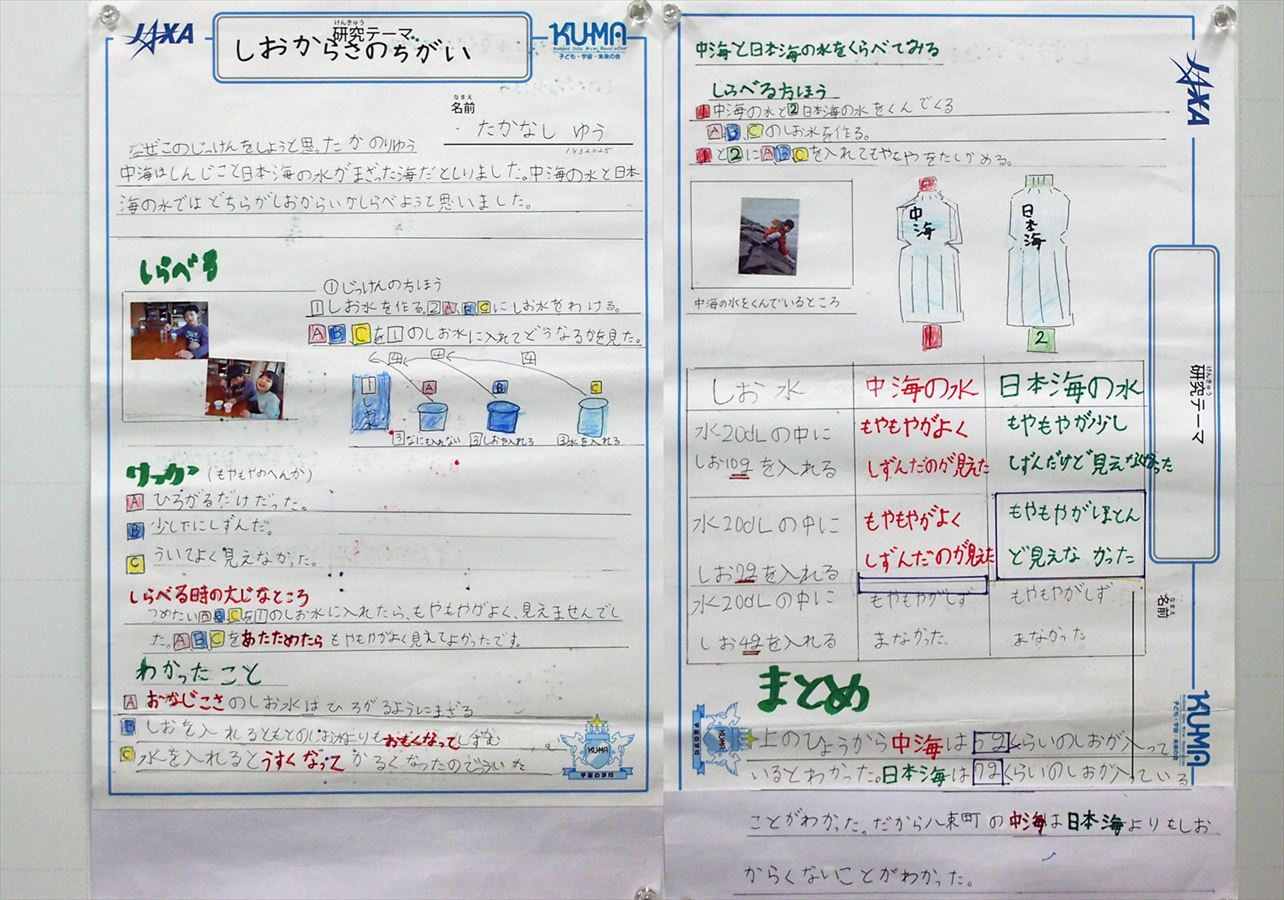 JAXA
けんきゅう
研究テーマ
しおからさのちがい
KUMA
子ども・宇宙・未来の会
なまえ
名前
たかなし ゆう
1432025
なぜこのじっけんをしようと思ったかのりゆう
中海はしんじこと日本海の水がまざった海だとしりました。中海の水と日本
海の水ではどちらがしおからいかしらべようと思いました。
しらべる
①じっけんのちほう
1しお水を作る。2A、B、Cにしお水をわける。
A、B、Cを1のしお水に入れてどうなるかを見た。
4 4 4
1 しお水
A B C
3なにも入れない 3しおを入れる 3水を入れる
けっか(もやもやのへんか)
A ひろがるだけだった。
B 少し下にしずんだ。
C ういてよく見えなかった。
しらべる時の大じなところ
つめたいA、B、Cを1のしお水に入れたら、もやもやがよく、見えませんでし
た。A、B、Cをあたためたらもやもやがよく見えてよかったです。
わかったこと
A おなじこさのしお水はひろがるようにまざる
B しおを入れるともとのしお水よりもおもくなってしずむ
C 水を入れるとうすくなってかるくなったのでういた
KUMA
宇宙の学校
中海と日本海の水をくらべてみる
しらべる方ほう
1中海の水と2日本海の水をくんでくる
A、B、Cのしお水を作る。
1と2にA、B、Cを入れてもやもやをたしかめる。
中海の水をくんでいるところ
中海
日本海
1
2
しお水 中海の水 日本海の水
水20dLの中に もやもやがよく もやもやが少し
しお10gを入れる しずんだのが見えた しずんだけど見えなかった
水20dLの中に もやもやがよく もやもやがほとん
しお7gを入れる しずんだのが見えた ど見えなかった
水20dLの中に もやもやがしず もやもやがしず
しお4gを入れる まなかった まなかった
まとめ
上のひょうから中海は5gくらいのしおが入って
いるとわかった。日本海は7gくらいのしおが入っている
ことがわかった。だから八束町の中海は日本海よりもしお
からくないことがわかった。
JAXA
けんきゅう
研究テーマ
なまえ
名前
KUMA
子ども・宇宙・未来の会
KUMA
宇宙の学校